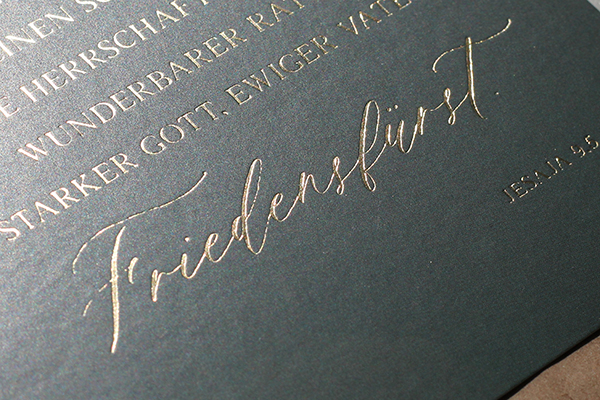 EINEN SO
E HERRSCHAFT
WUNDERBARER RAT
STARKER GOTT, EWIGER VATE
Friedensfürst.
JESAJA 9,6